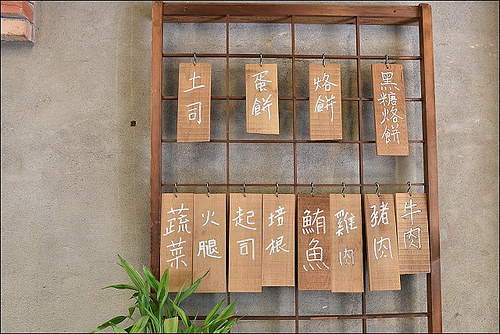 土司
蛋餅
烙餅
黑糖烙餅
蔬菜
火腿
起司
培根
鮪魚
雞肉
豬肉
牛肉